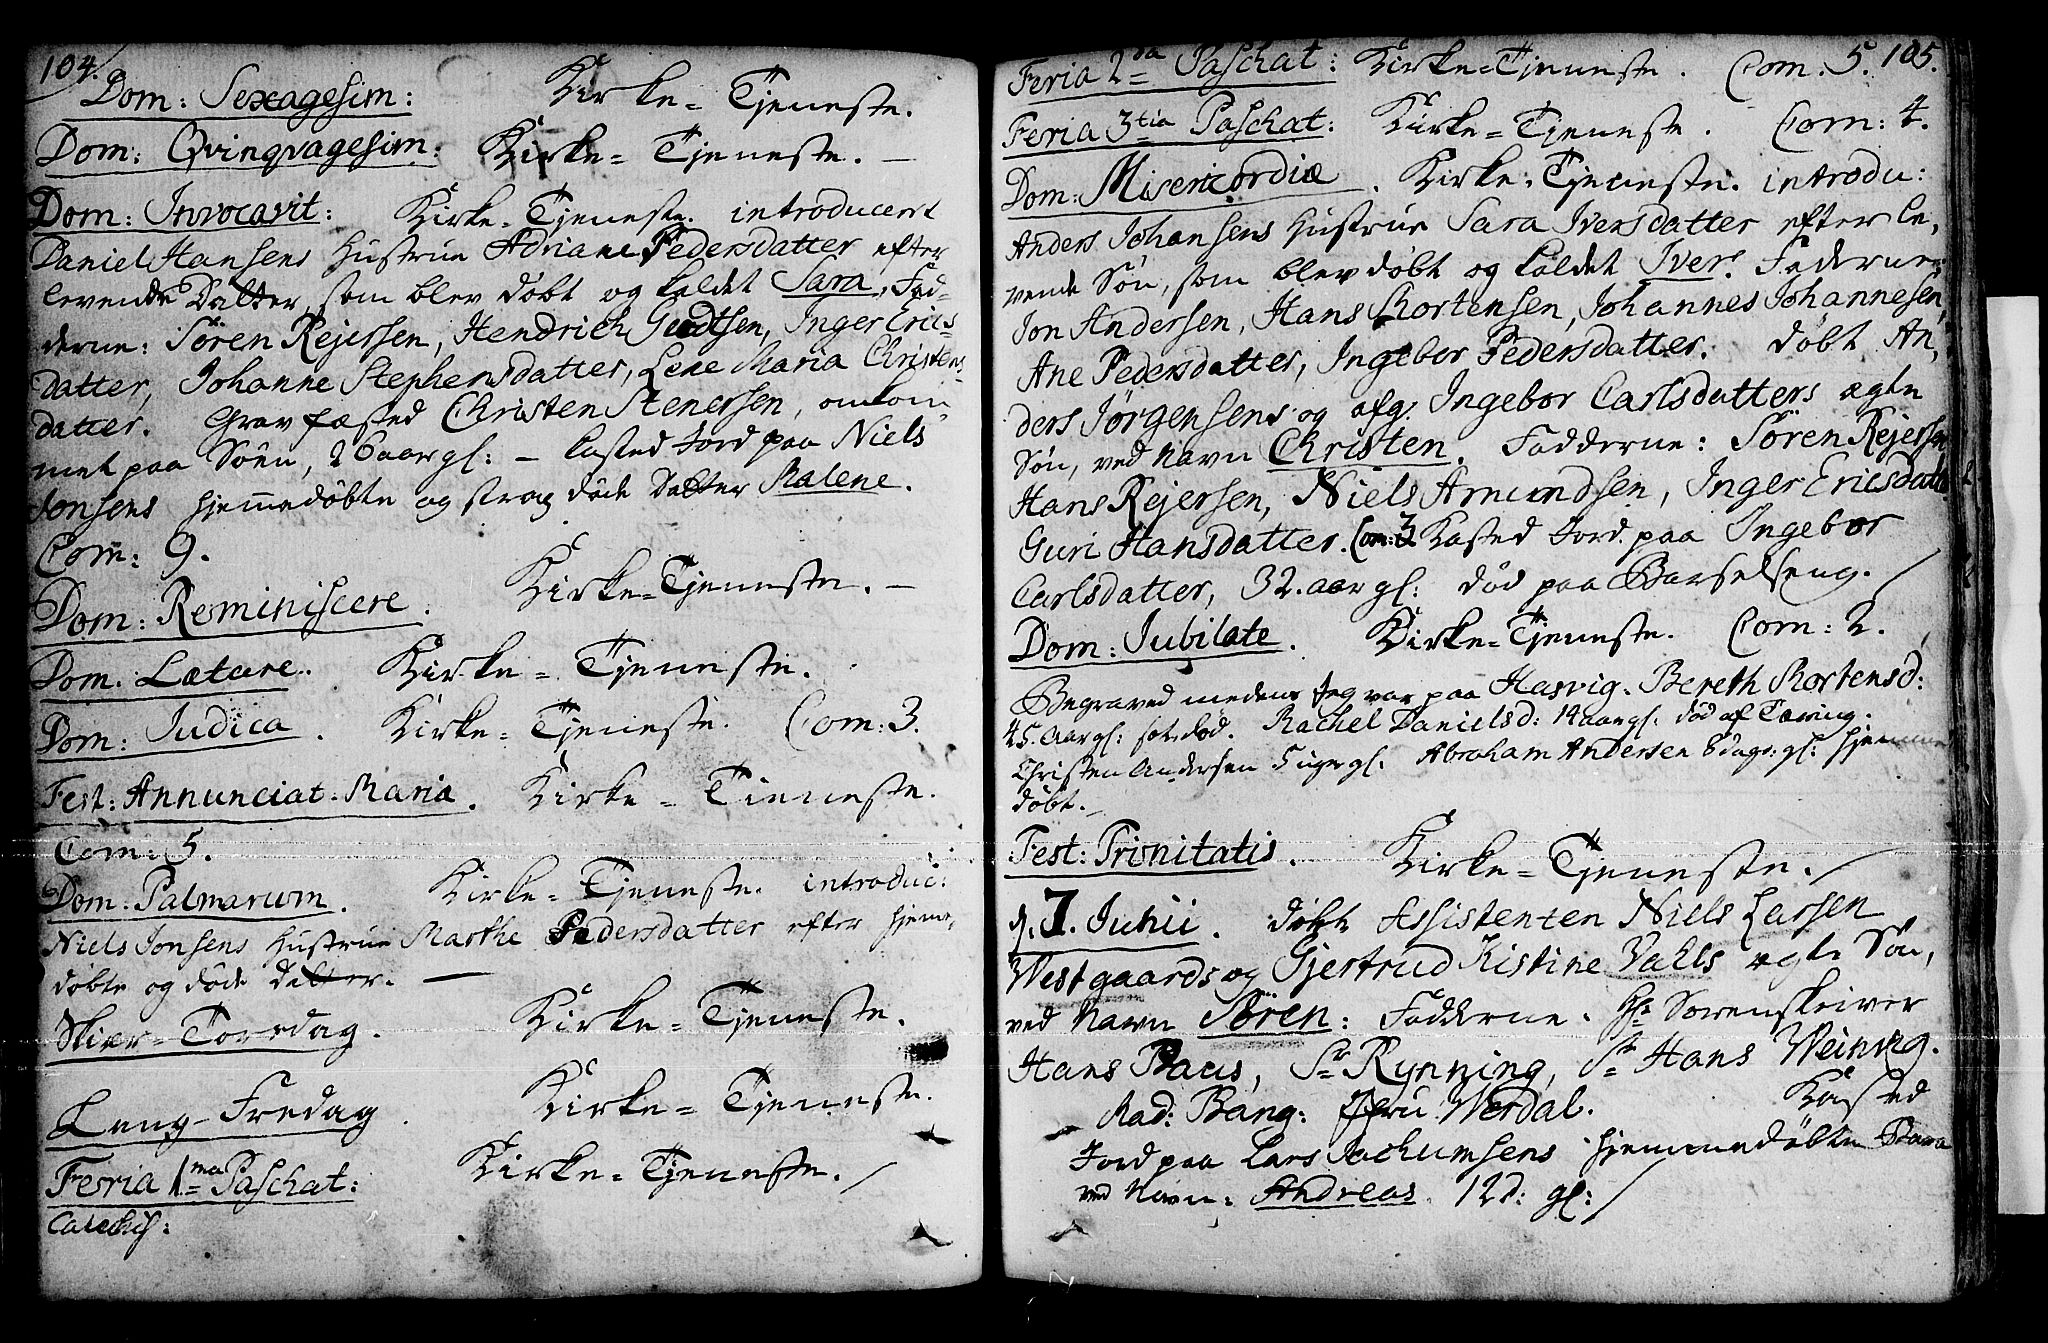 104.
Dom: Sexagesim: Kirke-Tjeneste.
Dom: Qvinqvagesim: Kirke-Tjeneste. —
Dom: Invocavit: Kirke-Tjeneste. introducert
Daniel Hansens Hustrue Adriane Pedersdatter efter
levende Datter, som blev døbt og kaldet Sara, Fad-
derne: Søren Rejersen, Hendrich Gudtsen, Inger Erics-
datter, Johanne Stephensdatter, Lene Maria Christens-
datter. Grav fæsted Christen Stenersen, omkom
met paa Søen, 26 aar gl: — Casted Jord paa Niels
Jonsens hjemmedøbte og strax døde Datter Malene.
Com: 9.
Dom: Reminiscere. Kirke-Tjeneste. —
Dom: Lætare. Kirke-Tjeneste.
Dom: Judica. Kirke-Tjeneste. Com: 3.
Fest: Annunciat: Mariæ. Kirke-Tieneste.
Com: 5.
Dom: Palmarum. Kirke-Tjeneste. introduc:
Niels Jonsens Hustrue Marthe Pedersdatter efter hjeme-
døbte og døde datter. —
Skier-Torsdag. Kirke-Tjeneste.
Lang-Fredag. Kirke-Tjeneste.
Feria 1ma Paschat: Kirke-Tjeneste. /
Catechis:
105.
Feria 2da Paschat: Kirke-Tjeneste. Com. 5.
Feria 3tia Paschat: Kirke-Tjeneste. Com: 4.
Dom: Misericordiæ. Kirke-Tjeneste. introdu:
Anders Johansens Hustrue Sara Iversdatter efter le-
vende Søn, som blev døbt og kaldet Iver. Fadderne:
Jon Andersen, Hans Mortensen, Johannes Johannesen,
Ane Pedersdatter, Ingebor Pedersdatter. døbt An-
ders Jørgensens og afg. Ingebor Carlsdatters ægte
Søn, ved Navn Christen. Fadderne: Søren Rejersen
Hans Rejersen, Niels Amundsen, Inger Ericsdatter
Guri Hansdatter. Com: 3. Kasted Jord paa Ingebor
Carlsdatter, 32. aar gl: død paa Barselseng. /
Dom: Jubilate. Kirke-Tjeneste. Com: 2.
Begraved medens Jeg var paa Hasvig. Bereth Mortensd:
45. Aar gl: død. Rachel Danielsd: 14 aar gl. død af Tæring.
Christen Andersen 5 uger gl. Abraham Andersen 8 dage: gl: hjemme
døbt. —
Fest: Trinitatis. Kirke-Tjeneste. /
d. 7. Junii. døbt Assistenten Niels Larsen
Westgaards og Gjertrud Kistine Valls ægte Søn,
ved Navn Søren: Fadderne. Hr Sorenskriver
Hans Paus, Sr Rynning, Sr Hans Weinwig.
Mad: Bang: Jfru Werdal. Kasted
Jord paa Lars Jochumsens hjemmedøbte Barn
ved Navn: Andreas. 12 d: gl: /